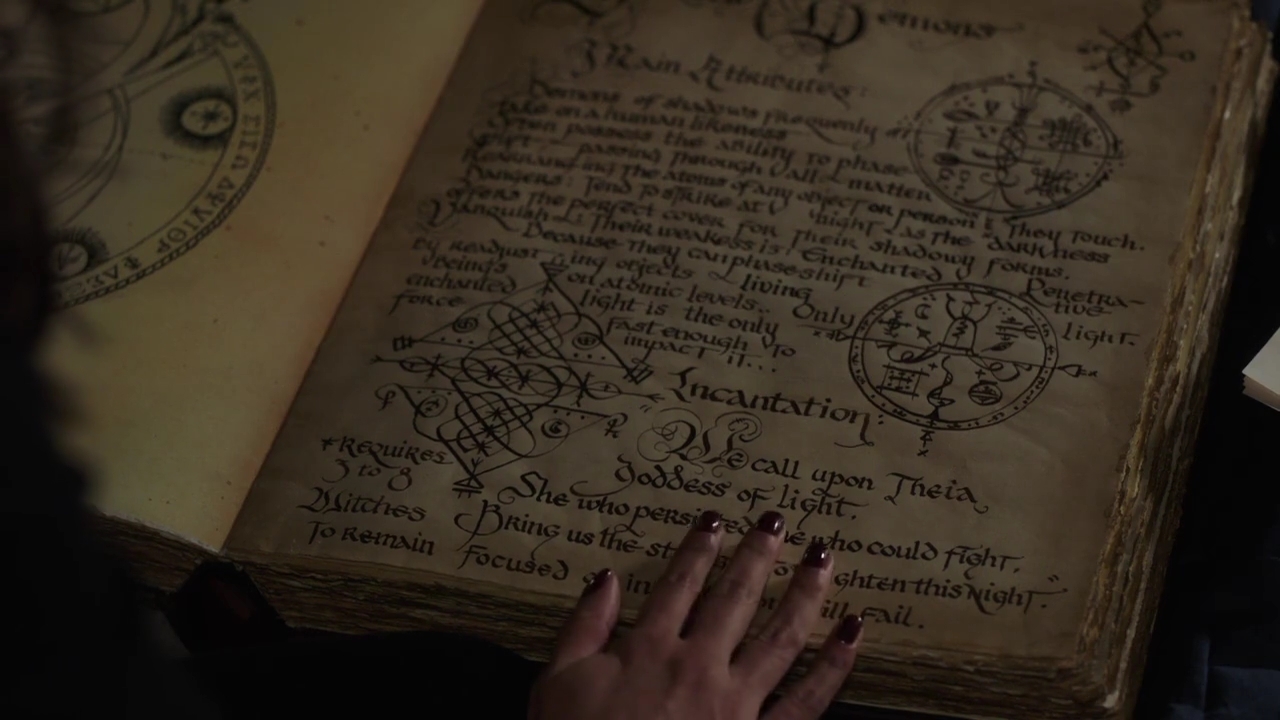 Demons
Main Attributes:
Demons of shadows frequently
take on a human likeness
often possess the ability to phase
shift — passing through all matter
Rearranging the atoms of any object or person they touch.
Dangers: Tend to strike at night as the darkness
offers the perfect cover for their shadowy forms.
Vanquish: Their weakess is Enchanted Penetra-
tive light.
Because they can phaseshift
by readjusting objects living
Being's on atomic levels.. Only
enchanted light is the only
force fast enough to
impact it...
Incantation:
"We call upon Theia
Goddess of light.
She who persisted who could fight.
Bring us the to ghten this Night."
*Requires
3 to 8
Witches
To remain Focused
fail.